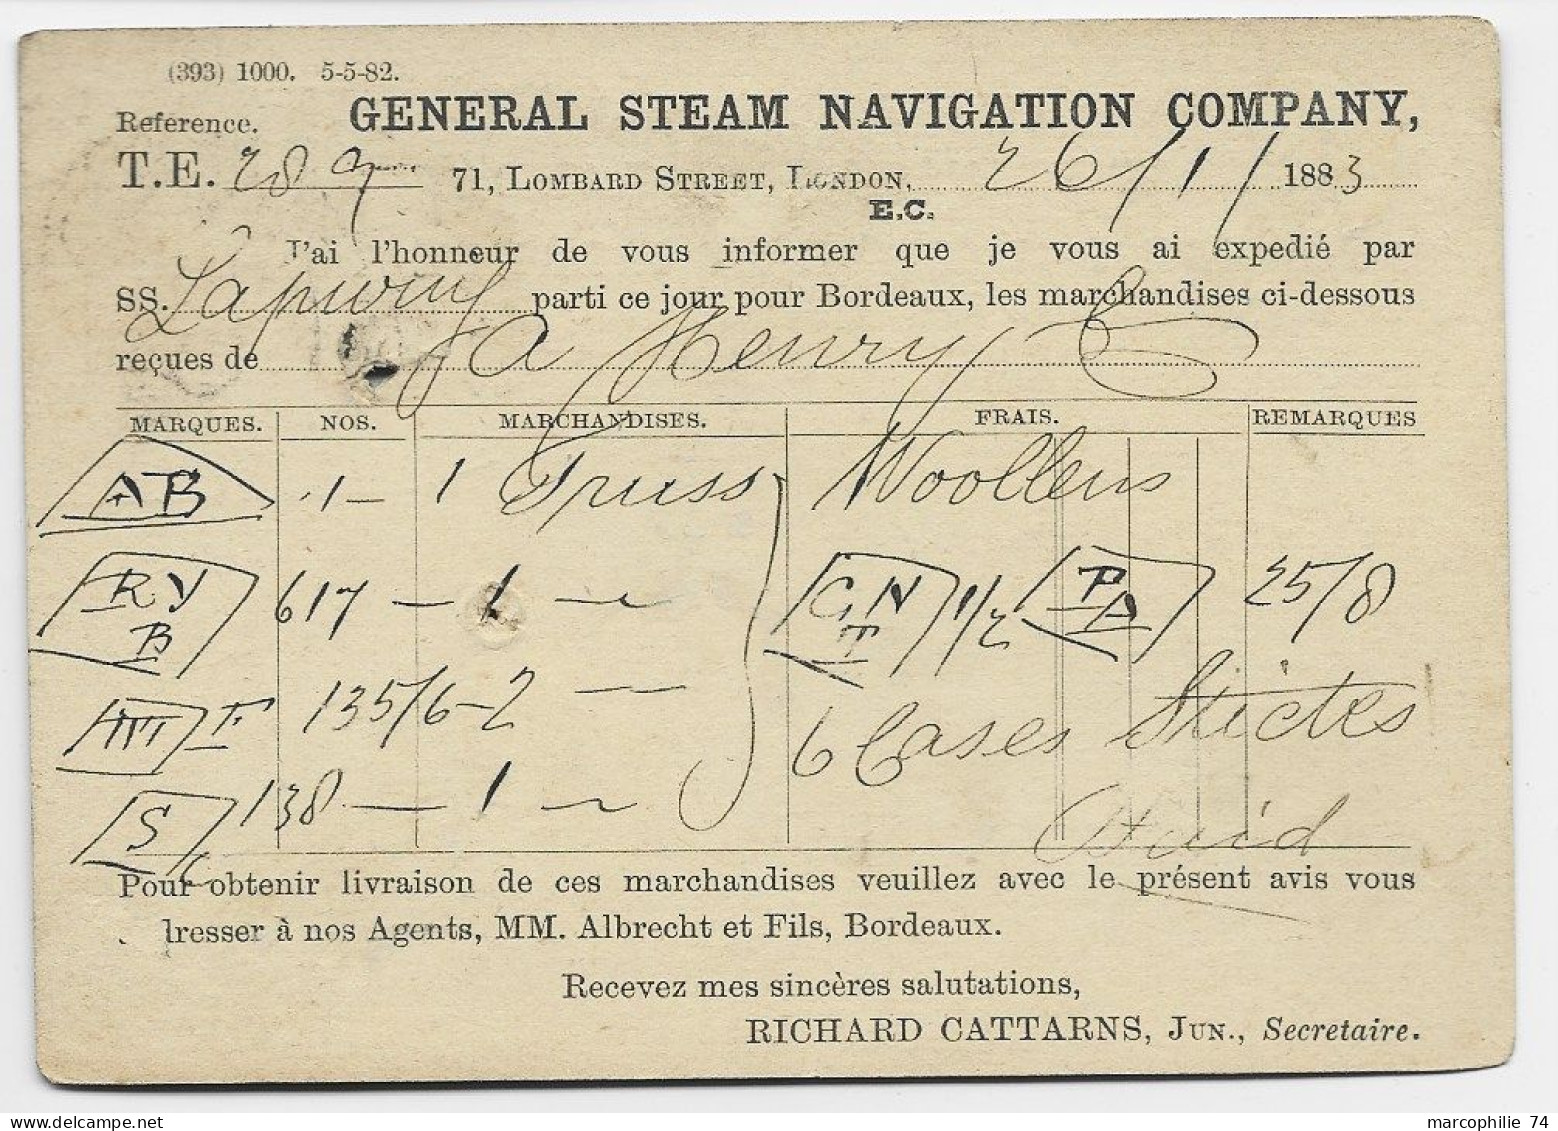 (393) 1000. 5-5-82.
GENERAL STEAM NAVIGATION COMPANY,
Reference.
T.E. 28 71, LOMBARD STREET, LONDON, 26/1/ 1883
E.C.
J'ai l'honneur de vous informer que je vous ai expedié par
SS. Lapwing parti ce jour pour Bordeaux, les marchandises ci-dessous
reçues de A Henry
MARQUES. NOS. MARCHANDISES. FRAIS. REMARQUES
AB 1 - 1 Truss Woollens
RY B 617 - 1 - GN T 1/2 PA 25/8
F 135/6 - 2 - 6 Cases
S 138 - 1 -
Pour obtenir livraison de ces marchandises veuillez avec le présent avis vous
dresser à nos Agents, MM. Albrecht et Fils, Bordeaux.
Recevez mes sincères salutations,
RICHARD CATTARNS, JUN., Secretaire.
marcophilie 74